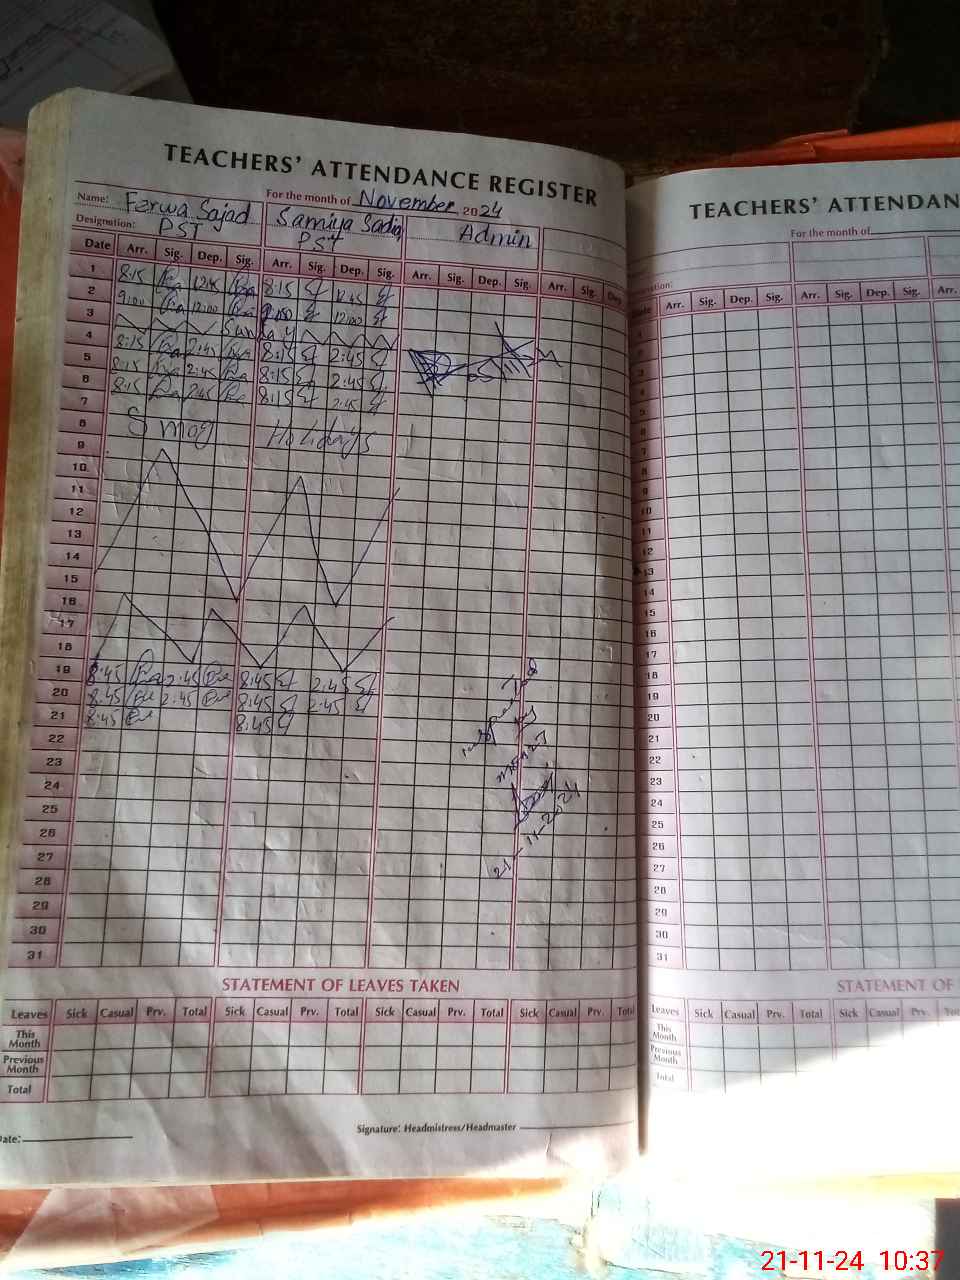 TEACHERS' ATTENDANCE REGISTER
Name: Ferwa Sajad For the month of November 2024
Samiya Sadiq Admin
Designation: PST PST
Date Arr. Sig. Dep. Sig. Arr. Sig. Dep. Sig. Arr. Sig. Dep. Sig. Arr. Sig. Dep.
1 8:15 12:45 8:15 12:45
2 9:00 12:00 9:00 12:00
3 Sunday
4 8:15 2:45 8:15 2:45
5 8:15 2:45 8:15 2:45
6 8:15 2:45 8:15 2:45
7
8 Smog Holidays
9
10
11
12
13
14
15
16
17
18
19 8:45 2:45 8:45 2:45
20 8:45 2:45 8:45 2:45
21 8:45 8:45
22
23
24
25
26
27
28
29
30
31
21-11-2024
STATEMENT OF LEAVES TAKEN
Leaves Sick Casual Prv. Total Sick Casual Prv. Total Sick Casual Prv. Total Sick Casual Prv. Total
This Month
Previous Month
Total
Date: Signature: Headmistress/Headmaster
TEACHERS' ATTENDAN
For the month of
Arr. Sig. Dep. Sig. Arr. Sig. Dep. Sig. Arr.
7
8
9
10
11
12
13
14
15
16
17
18
19
20
21
22
23
24
25
26
27
28
29
30
31
STATEMENT OF
Leaves Sick Casual Prv. Total Sick Casual Prv.
This Month
Previous Month
Total
21-11-24 10:37